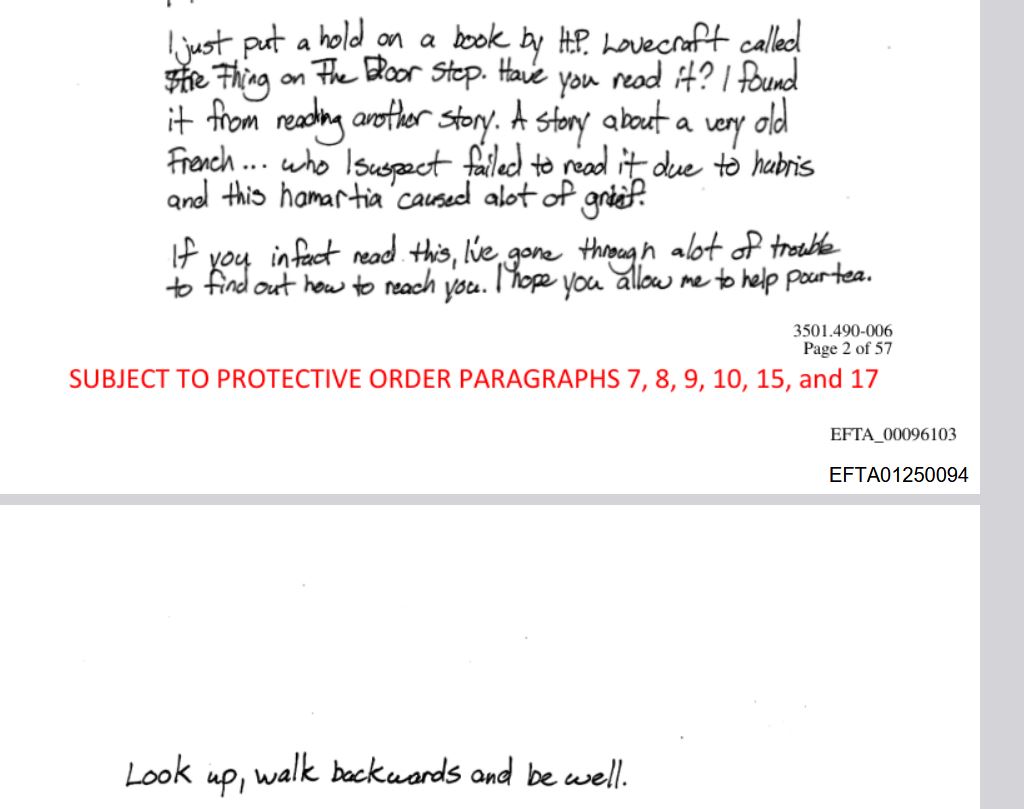 I just put a hold on a book by H.P. Lovecraft called
The Thing on The Door Step. Have you read it? I found
it from reading another story. A story about a very old
French... who I suspect failed to read it due to hubris
and this hamartia caused alot of grief.
If you infact read this, I've gone through alot of trouble
to find out how to reach you. I hope you allow me to help pour tea.
3501.490-006
Page 2 of 57
SUBJECT TO PROTECTIVE ORDER PARAGRAPHS 7, 8, 9, 10, 15, and 17
EFTA_00096103
EFTA01250094
Look up, walk backwards and be well.